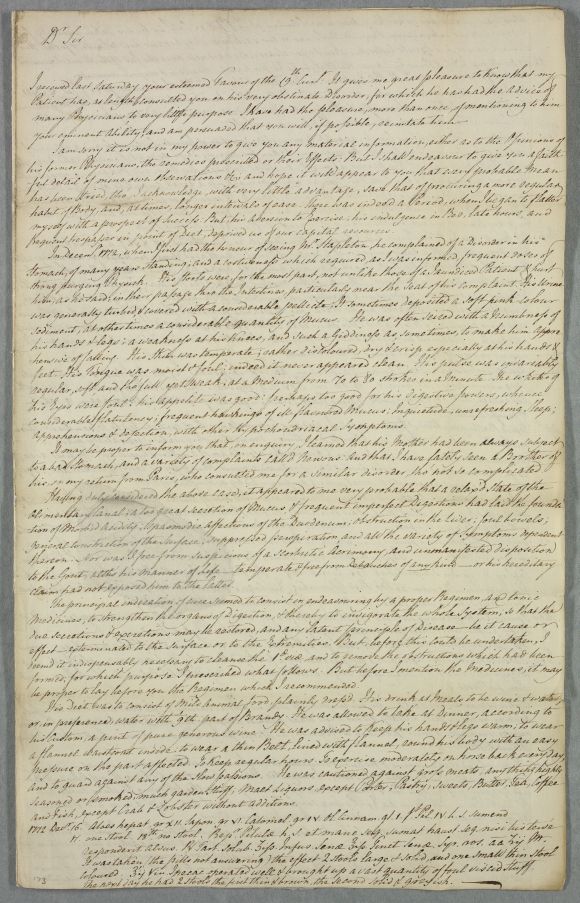 Dr Sir
I received last Saturday your esteemed Favour of the 19th Curt. It gives me great pleasure to know that my
Patient has, at length consulted you on his very obstinate disorder, for which he has had the advice of
many Physicians to very little purpose. I have had the pleasure, more than once, of mentioning to him
your eminent Ability, and am persuaded that you will, if possible, reinstate him.
I am sorry it is not in my power to give you any material information, either as to the Opinions of
his former Physicians, the remedies prescribed or their Effects. But I shall endeavour to give you a faith-
ful detail of mine own Observations &c and hope it will appear to you that every probable mean
has been tried, tho', I acknowledge, with very little advantage, save that of procuring a more regular
habit of Body, and, at times, longer intervals of ease. There was indeed a Period, when I began to flatter
myself with a prospect of success. But, his aversion to Exercise, his indulgence in Bed, late hours, and
frequent trespasses in point of diet, deprived us of our capital resources.
In Decemr. 1772, when I first had the honour of seeing Mr. Stapleton, he complained of a Disorder in his
Stomach, of many years standing, and a costiveness which required, as I was informed, frequent doses of
strong purging Physick. His Stools were, for the most part, not unlike those of a Jaundiced Patient & hurt
him, as he said, in their passage thro' the Intestines particularly near the seat of his complaint. His Urine
was generally turbid, & covered with a considerable pellicle: It sometimes deposited a soft pink colour
sediment, at other times a considerable quantity of Mucus. He was often seized with a Numbness of
his hands & legs; a weakness at his knees, and such a Giddiness as sometimes, to make him appre-
hensive of falling. His Skin was temperate; rather discoloured, dry & crisp especially at his hands &
feet. His Tongue was moist & foul; indeed it never appeared clean. His pulse was invariably
regular, soft and the full yet weak, at a Medium from 70 to 80 strokes in a Minute. The whites of
his Eyes were foul: his appetite was good; perhaps too good for his Digestive powers, whence
considerable flatulency; frequent hawkings of ill-flavoured Mucus; Inquietude, unrefreshing Sleep;
apprehensions & dejection, with other Hypochondriacal Symptoms.
It may be proper to inform you that, on enquiry, I learned that his Mother had been always subject
to a bad Stomach, and a variety of complaints call'd Nervous. And that, I have lately seen a Brother of
his, on my return from Paris, who consulted me for a similar disorder, tho' not so complicated
Having duly considered the above case, it appeared to me very probable that a relax'd State of the
Alimentary Canal; a too great secretion of Mucus & frequent imperfect Digestions had laid the founda-
tion of Morbid Acidity, Spasmodic affections of the Duodenum; Obstruction in the Liver; foul bowels;
general constriction of the Surface, suppressed perspiration and all the variety of Symptoms dependent
thereon. Nor was I free from suspicions of a Scorbutic Acrimony and unmanifested disposition
to the Gout, altho his Manner of Life temperate & free from Debauches of any kind or his hereditary
claim had not exposed him to the latter.
The principal indication of cure seemed to consist in endeavouring by a proper Regimen, and tonic
Medicines, to strengthen the organs of digestion, & thereby to invigorate the whole System, so that the
due secretions & excretions may be restored, and any latent principle of Disease be it cause or
effect exterminated to the Surface or to the Extremities. But, before this could be undertaken, I
deem'd it indispensably necessary to cleanse the 1ae viae and to remove the obstructions which had been
formed, for which purpose I prescribed what follows. But before I mention the Medicines, it may
be proper to lay before you the Regimen which I recommended.
His Diet was to consist of Mild Animal food, plainly dress'd. His drink at Meals to be wine & water,
or in preference water with 9th part of Brandy. He was allowed to take at Dinner, according to
his Custom a pint of pure generous wine. He was advised to keep his hands & legs warm; to wear
a flannel Waistcoat inside to wear a thin Belt, lined with flannel, round his body with an easy
pressure on the part affected. To keep regular hours. To exercise moderately on horse back every day,
and to guard against any of the Non Passions. He was cautioned against gross meats, any things highly
seasoned or smoked; much garden stuff; Malt Liquors except Porter; Pastry, Sweets, Butter, Tea, Coffee
and fish, except Crab & Lobster without additions.
1772 Decr. 16. Aloes hepat gr XII Sapon. gr VI Calomel. gr IV Ol Cinnam gt I ft Pil IV h.s. sumend
17. one Stool. 18th no Stool. Rept. Pilulae h.s. et mane seq. sumat haust. seq. nisi his terve
respondent alvus.
I was taken, the pills not answering: the effect 2 Stools large & Solid, and one small thin Stool
coloured. operated well & brought up a vast quantity of foul viscid Stuff.
the next day he had 2 Stools the first thin & brown, the second solid & greyish.
173